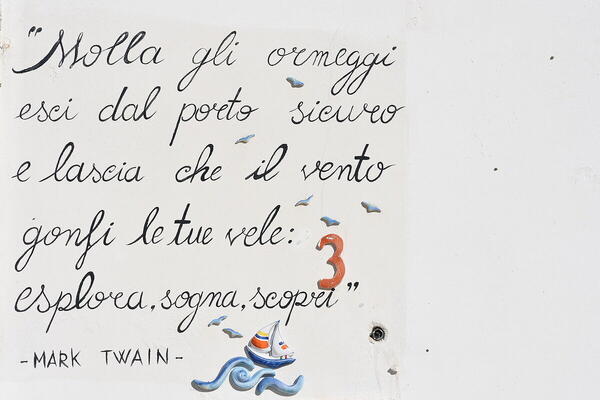 "Molla gli ormeggi
esci dal porto sicuro
e lascia che il vento
gonfi le tue vele:
3
esplora, sogna, scopri"
-MARK TWAIN-